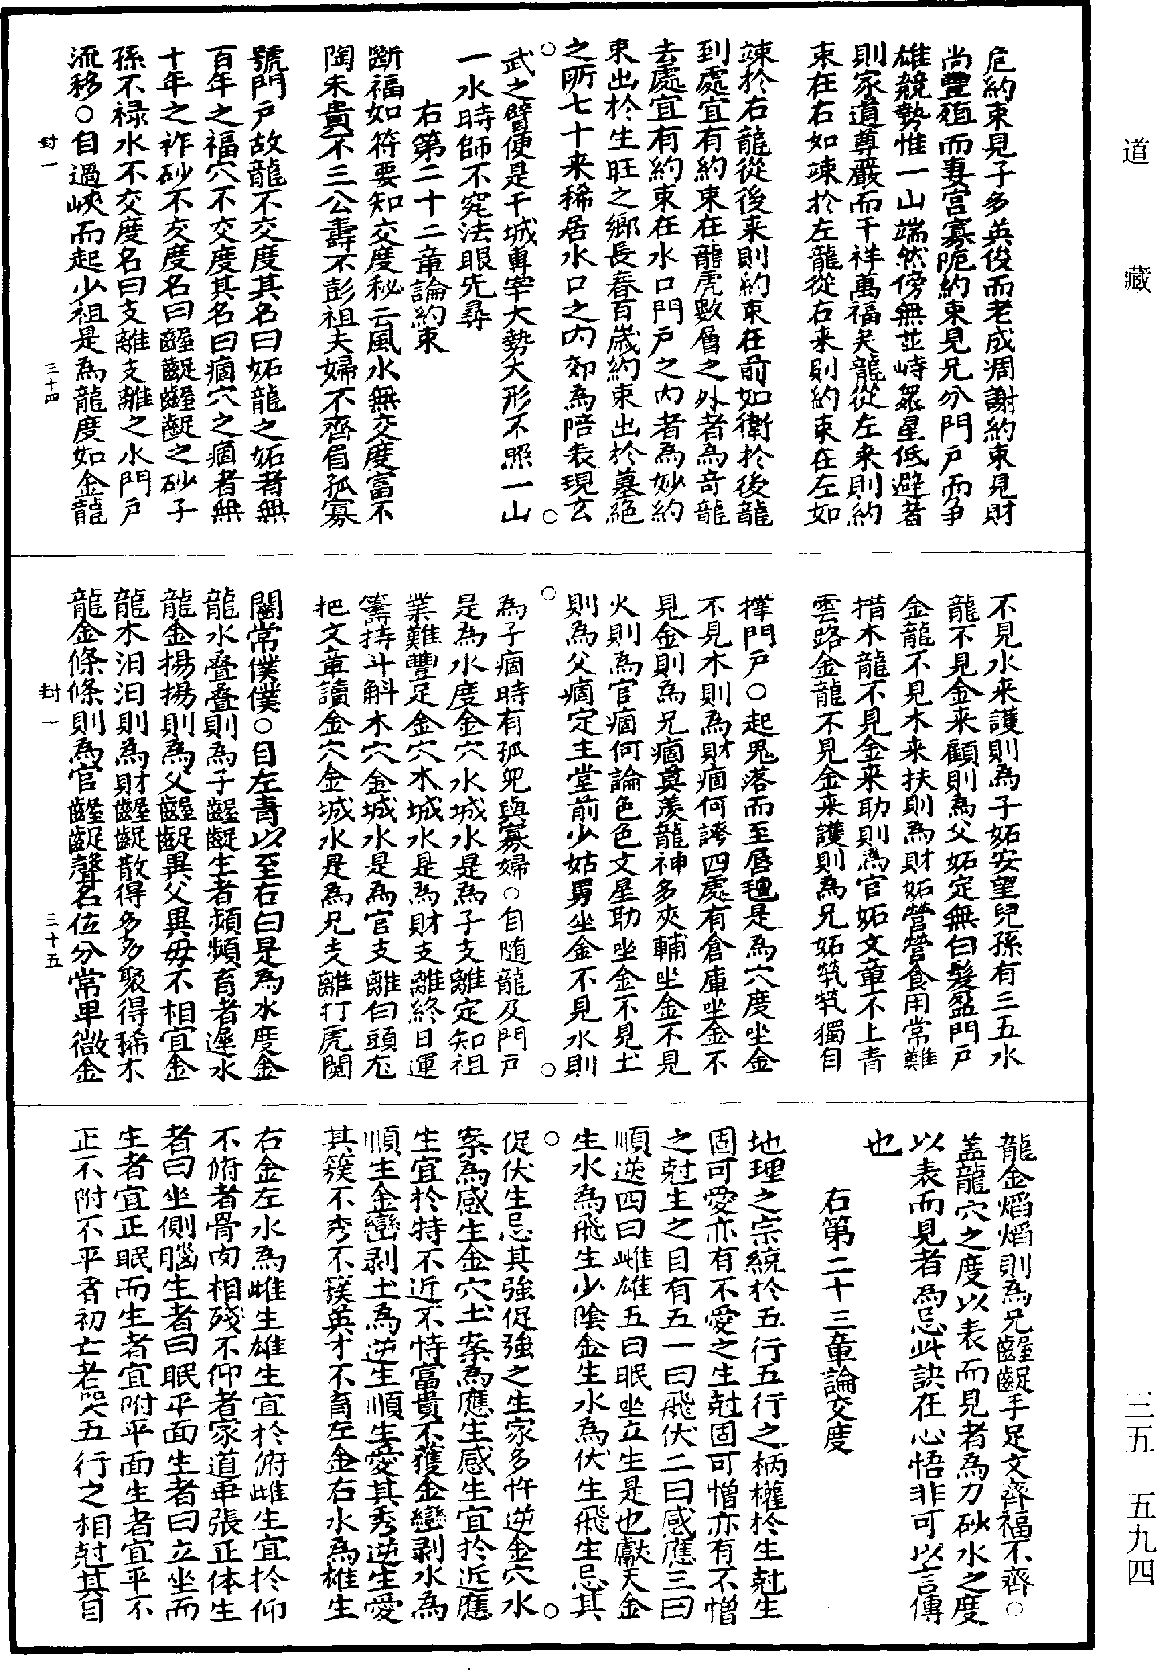 道藏
危約束見子多英俊而老成凋謝約束見財
尚豐殖而妻宮寡陁約束見兄分門戶而爭
雄競勢惟一山端然傍無並峙衆星低避者
則家道尊嚴而千祥萬福矣龍從左來則約
束在右如竦於左龍從右來則約束在左如
竦於右龍從後來則約束在前如衛於後龍
到處宜有約束在龍虎數層之外者為奇龍
去處宜有約束在水口門戶之內者為妙約
束出於生旺之鄉長春百歲約束出於墓絕
之所七十来稀居水口之內郊為陪表現玄
武之臂便是干城專宰大勢大形不照一山
一水時師不究法眼先尋
右第二十二章論約束
斷福如符要知交度秘云風水無交度富不
陶朱貴不三公壽不彭祖夫婦不齊眉孤寡
號門戶故龍不交度其名曰妬龍之妬者無
百年之福穴不交度其名曰痼穴之痼者無
十年之祚砂不交度名曰齷齪齷齪之砂子
孫不祿水不交度名曰支離支離之水門戶
流移○自過峽而起少祖是為龍度如金龍
封一　三十四
不見水来護則為子妬安望兒孫有三五水
龍不見金来顧則為父妬定無白髮盈門戶
金龍不見木来扶則為財妬營營食用常難
措木龍不見金来助則為官妬文章不上青
雲路金龍不見金来護則為兄妬煢煢獨自
撑門戶○起鬼落而至唇氊是為穴度坐金
不見木則為財痼何誇四處有倉庫坐金不
見金則為兄痼莫羡龍神多夾輔坐金不見
火則為官痼何論色色文星助坐金不見土
則為父痼定主堂前少姑舅坐金不見水則
為子痼時有孤兒與寡婦○自随龍及門戶
是為水度金穴水城水是為子支離定知祖
業難豐足金穴木城水是為財支離終日運
籌持斗斛木穴金城水是為官支離白頭尤
把文章讀金穴金城水是為兄支離打虎閱
鬮常僕僕○自左青以至右白是為水度金
龍水疊疊則為子齷齪生者頻頻育者遲水
龍金揚揚則為父齷齪異父異毋不相宜金
龍木汩汩則為財齷齪散得多多聚得稀木
龍金條條則為官齷齪聲名位分常卑微金
封一　三十五
龍金熖熖則為兄齷齪手足文齊福不齊○
盖龍穴之度以表而見者為力砂水之度
以表而見者為忌此訣在心悟非可以言傳
也
右第二十三章論交度
地理之宗統於五行五行之柄權於生尅生
固可愛亦有不愛之生尅固可憎亦有不憎
之尅生之目有五一曰飛伏二曰感應三曰
順逆四曰雌雄五曰眠坐立生是也獻天金
生水為飛生少陰金生水為伏生飛生忌其
促伏生忌其強促強之生家多忤逆金穴水
案為感生金穴土案為應生感生宜於近應
生宜於特不近不恃富貴不獲金巒剥水為
順生金巒剥土為逆生順生愛其秀逆生愛
其簇不秀不簇英才不育左金右水為雄生
右金左水為雌生雄生宜於俯雌生宜於仰
不俯者骨肉相殘不仰者家道乖張正体生
者曰坐側腦生者曰眠平面生者曰立坐而
生者宜正眠而生者宜附平面生者宜平不
正不附不平者初亡老哭五行之相尅其目
三五　五九四